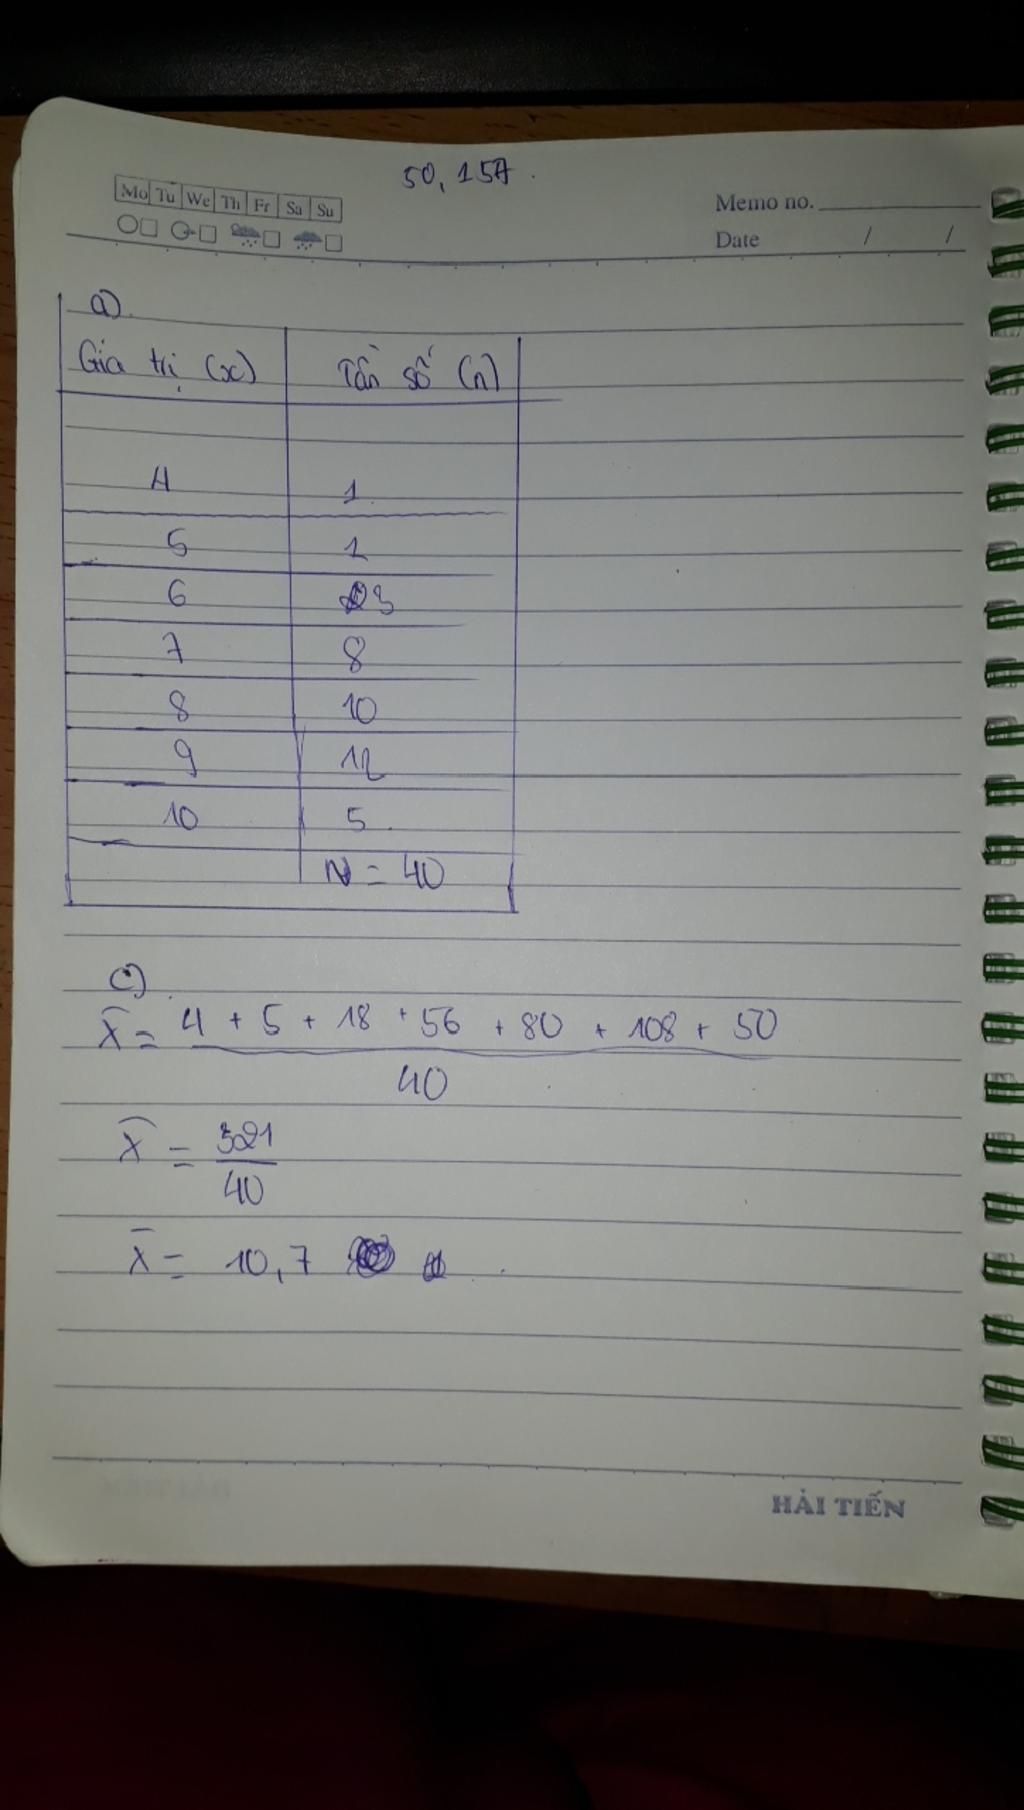 50, 157.
Mo Tu We Th Fr Sa Su
Memo no.
Date / /
a)
Giá trị (x) Tần số (n)
4 1
5 1
6 3
7 8
8 10
9 12
10 5
N = 40
c)
X̄ = 4 + 5 + 18 + 56 + 80 + 108 + 50
40
X̄ = 321
40
X̄ = 10,7
HẢI TIẾN